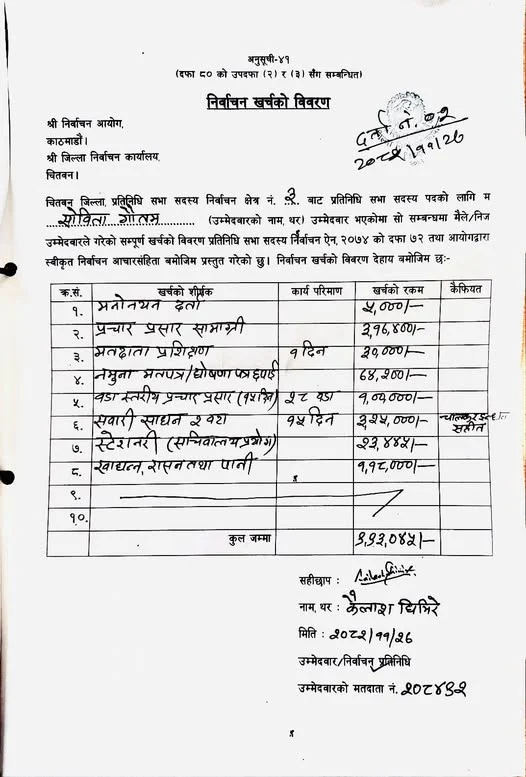 अनुसूची-४१
(दफा ८० को उपदफा (२) र (३) सँग सम्बन्धित)
निर्वाचन खर्चको विवरण
दर्ता नं. ७२
२०८२/११/२६
श्री निर्वाचन आयोग,
काठमाडौं।
श्री जिल्ला निर्वाचन कार्यालय,
चितवन।
चितवन जिल्ला, प्रतिनिधि सभा सदस्य निर्वाचन क्षेत्र नं. ३ बाट प्रतिनिधि सभा सदस्य पदको लागि म
सोविता गौतम (उम्मेदवारको नाम, थर) उम्मेदवार भएकोमा सो सम्बन्धमा मैले/निज
उम्मेदवारले गरेको सम्पूर्ण खर्चको विवरण प्रतिनिधि सभा सदस्य निर्वाचन ऐन, २०७४ को दफा ७२ तथा आयोगद्वारा
स्वीकृत निर्वाचन आचारसंहिता बमोजिम प्रस्तुत गरेको छु। निर्वाचन खर्चको विवरण देहाय बमोजिम छः-
क्र.सं. खर्चको शीर्षक कार्य परिमाण खर्चको रकम कैफियत
१. मनोनयन दर्ता ५,०००/-
२. प्रचार प्रसार सामाग्री ३,१६,४००/-
३. मतदाता प्रशिक्षण १ दिन ३०,०००/-
४. नमुना मतपत्र/घोषणा पत्र छपाई ६४,२००/-
५. वडा स्तरीय प्रचार प्रसार (१५ दिन) २८ वडा
६. सवारी साधन २ वटा १५ दिन ३,२५,०००/- सहित
७. स्टेशनरी (सचिवालय प्रयोग) २३,४४५/-
८. खाद्यान्न, रासन तथा पानी १,१८,०००/-
९.
१०.
कुल जम्मा
सहीछाप :
नाम, थर : कैलाश घिमिरे
मिति : २०८२/११/२६
उम्मेदवार/निर्वाचन प्रतिनिधि
उम्मेदवारको मतदाता नं.